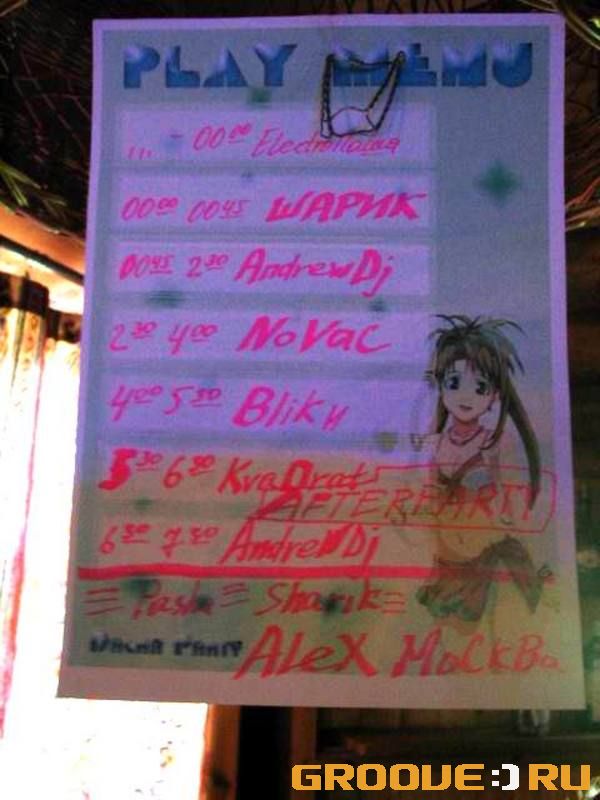 PLAY MENU
... - 00 00
00 00 00 45 ШАРИК
00 45 2 30 Andrew Dj
2 30 4 00 NoVac
4 00 5 30 Bliки
5 30 6 30 KvaDrat
AFTERPARTY
6 30 7 30 Andrew Dj
Pasha = Sharik
ALeX МоСкВа
GROOVE:)RU